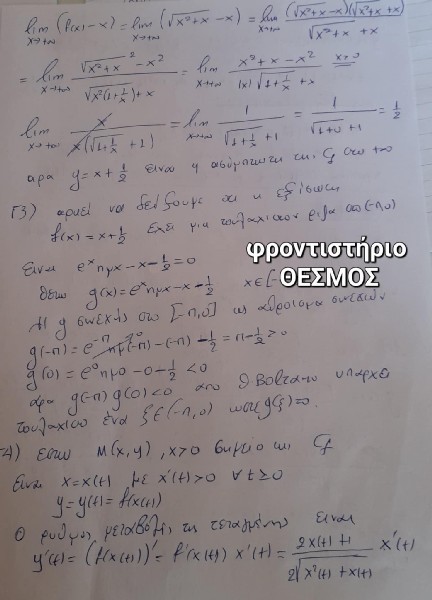 lim x→+∞ (f(x)-x) = lim x→+∞ (√(x²+x) - x) = lim x→+∞ (√(x²+x) - x)(√(x²+x) + x) / (√(x²+x) + x)
= lim x→+∞ (√(x²+x)² - x²) / (√(x²(1+1/x)) + x) = lim x→+∞ (x²+x-x²) / (|x|√(1+1/x) + x) x>0 =
lim x→+∞ x / (x(√(1+1/x) + 1)) = lim x→+∞ 1 / (√(1+1/x) + 1) = 1 / (√(1+0) + 1) = 1/2
αρα y = x + 1/2 ειναι η ασύμπτωτη της Cf στο +∞
Γ3) αρκεί να δείξουμε οτι η εξίσωση
f(x) = x + 1/2 έχει μια τουλάχιστον ριζα στο (-π,0)
φροντιστήριο
ΘΕΣΜΟΣ
Είναι eˣημx - x - 1/2 = 0
θετω g(x) = eˣημx - x - 1/2 x∈[-
Η g συνεχής στο [-π,0] ως άθροισμα συνεχών
g(-π) = e^-π ημ(-π) - (-π) - 1/2 = π - 1/2 > 0
g(0) = e⁰ημ0 - 0 - 1/2 < 0
αρα g(-π) g(0) < 0 απο Θ Bolzano υπαρχει
τουλαχιστο ένα ξ∈(-π,0) ωστε g(ξ)=0.
4) εστω M(x,y), x>0 σημείο της Cf
Είναι x = x(t) με x'(t) > 0 ∀ t ≥ 0
y = y(t) = f(x(t))
Ο ρυθμος μεταβολής της τεταγμένης είναι
y'(t) = (f(x(t)))' = f'(x(t)) x'(t) = (2x(t)+1) / (2√(x²(t)+x(t))) x'(t)